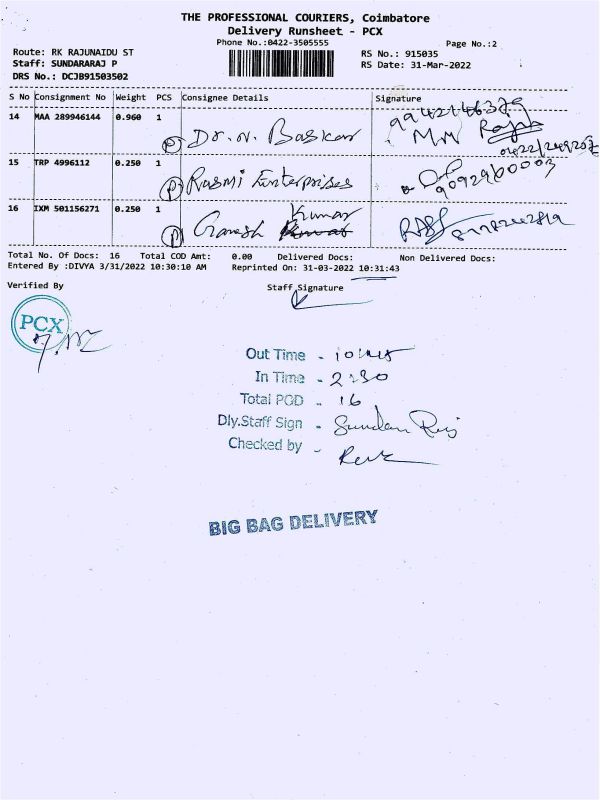 THE PROFESSIONAL COURIERS, Coimbatore
Delivery Runsheet - PCX
Phone No.:0422-3505555
Page No.:2
Route: RK RAJUNAIDU ST
RS No.: 915035
Staff: SUNDARARAJ P
RS Date: 31-Mar-2022
DRS No.: DCJB91503502
S No Consignment No Weight PCS Consignee Details Signature
14 MAA 289946144 0.960 1
P Dr. N. Baskar
15 TRP 4996112 0.250 1
P Rasmi Enterprises
16 IXM 501156271 0.250 1
Kumar
P Ganesh
Total No. Of Docs: 16 Total COD Amt: 0.00 Delivered Docs: Non Delivered Docs:
Entered By :DIVYA 3/31/2022 10:30:10 AM Reprinted On: 31-03-2022 10:31:43
Verified By Staff Signature
PCX
Out Time - 10:45
In Time - 2:30
Total POD - 16
Dly.Staff Sign - Sundar Raj
Checked by -
BIG BAG DELIVERY